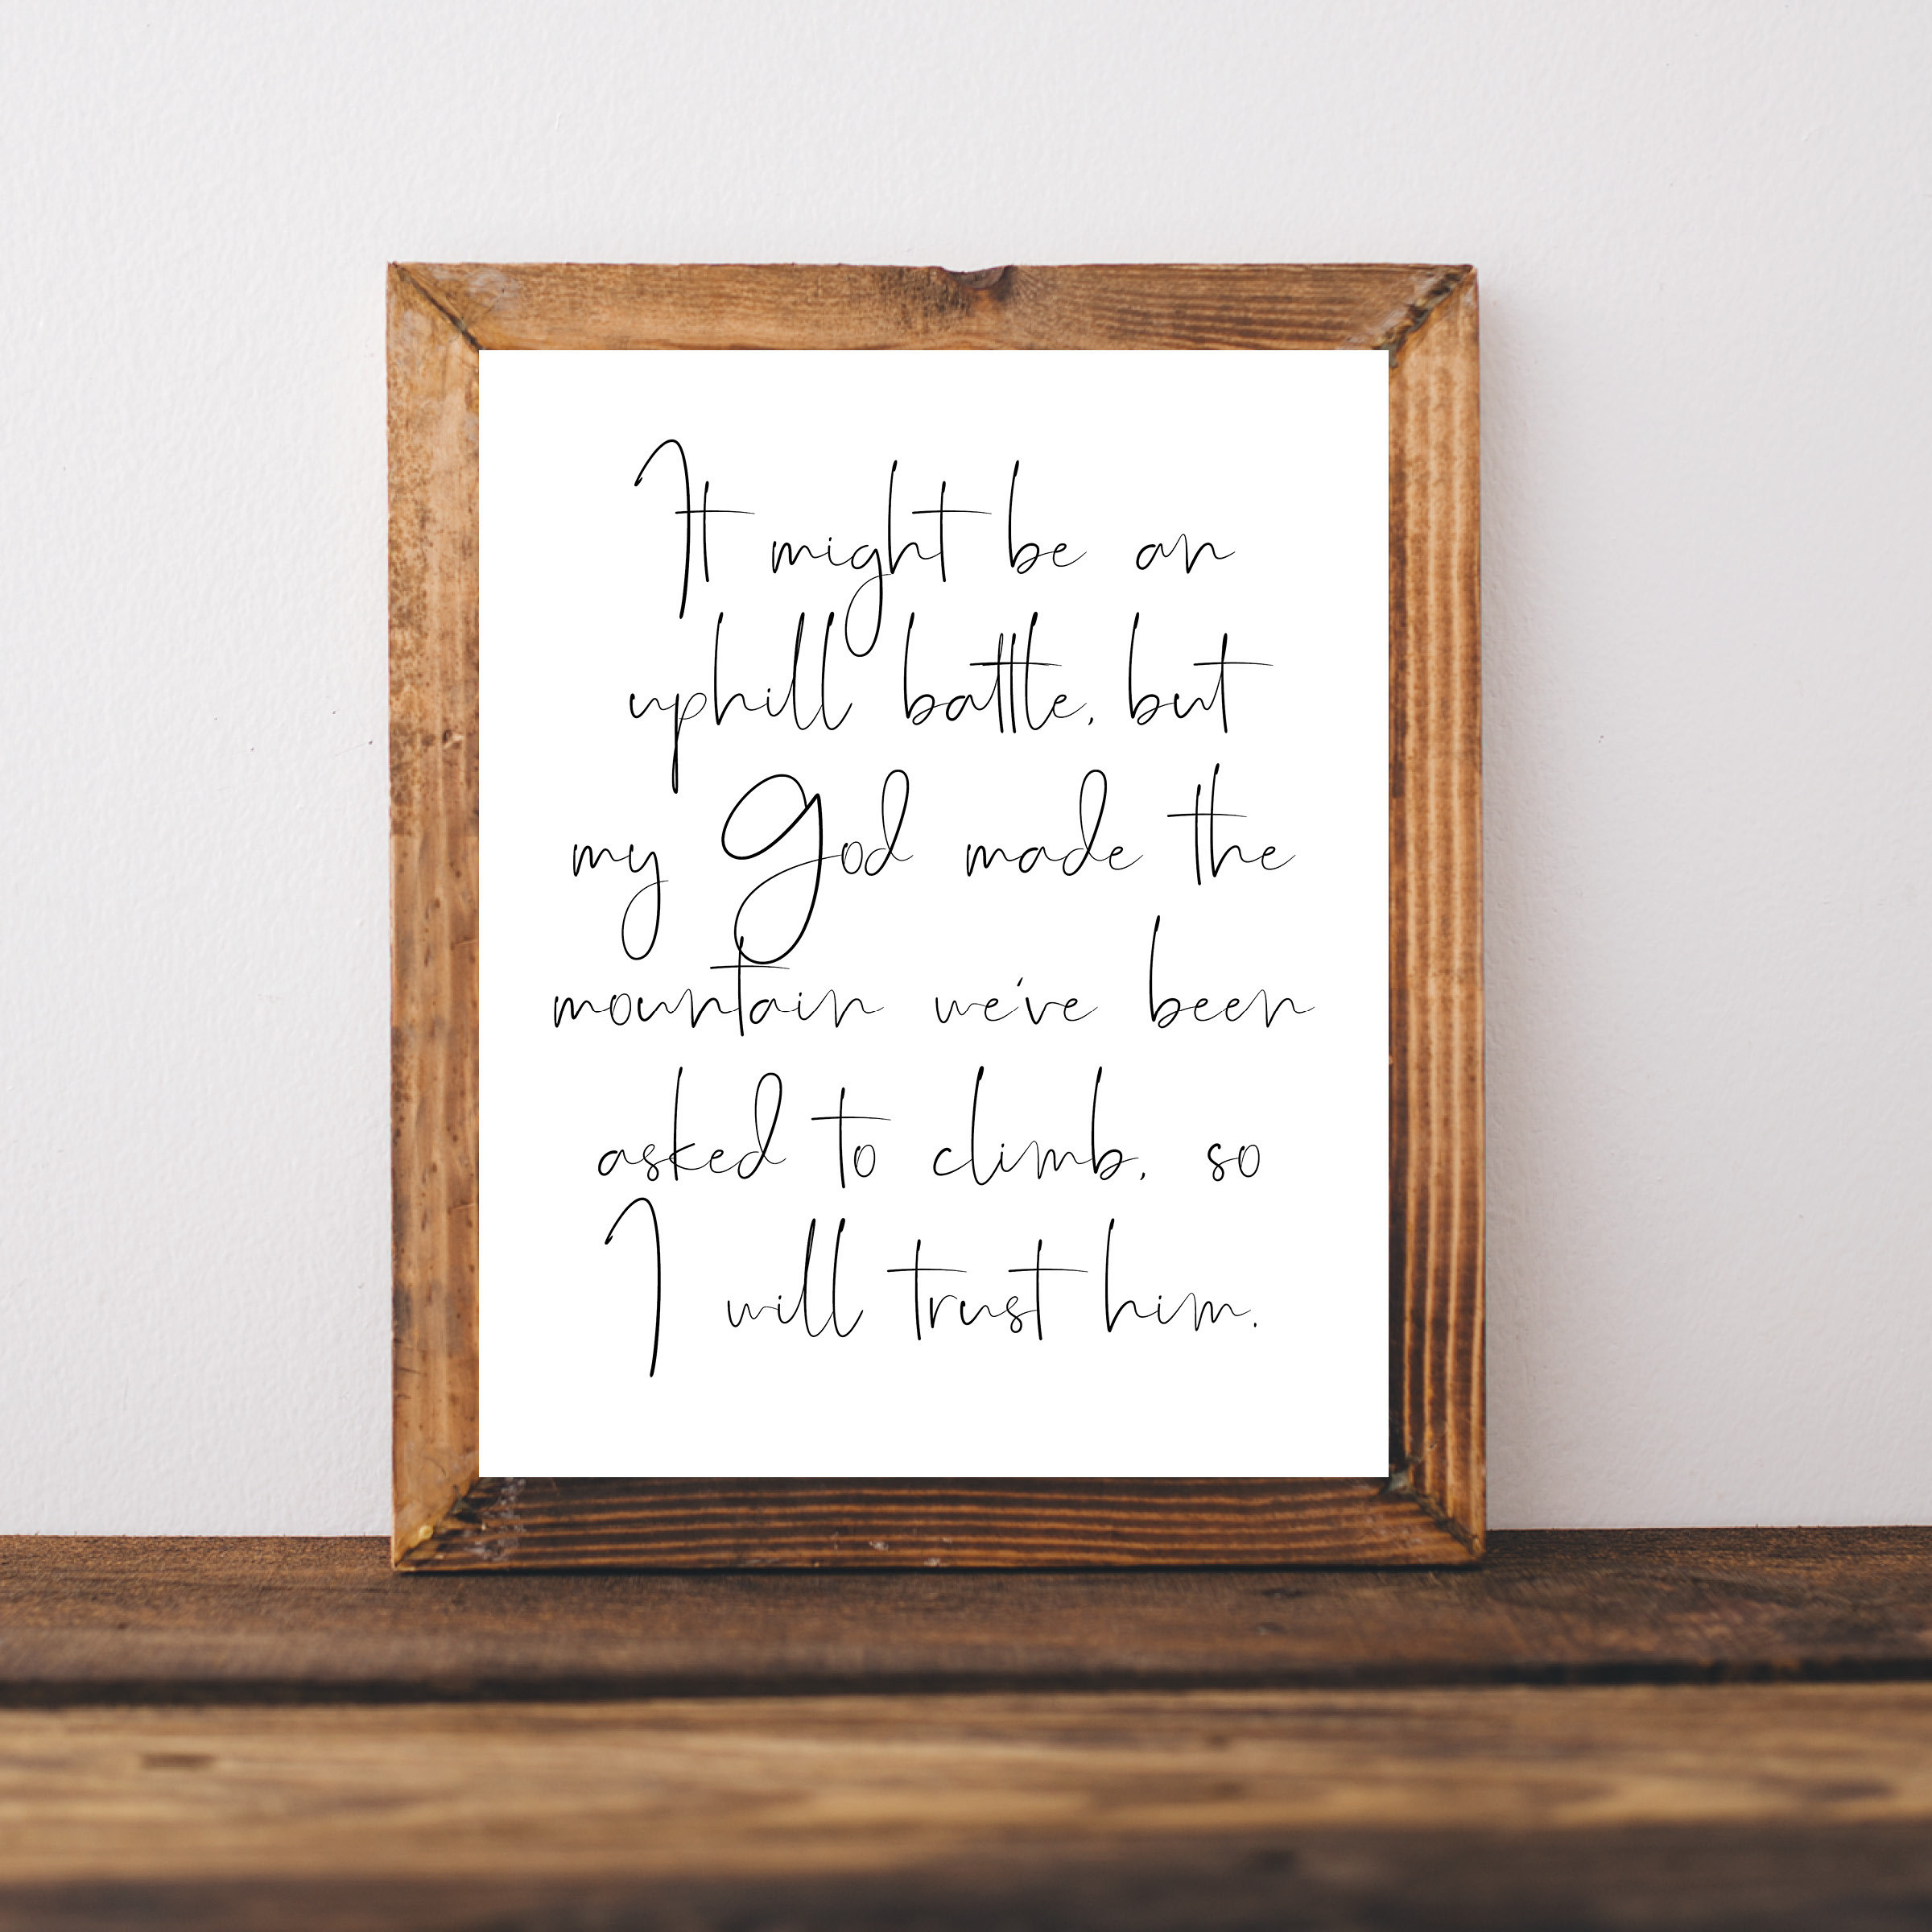 It might be an
uphill battle, but
my God made the
mountain we've been
asked to climb, so
I will trust him.